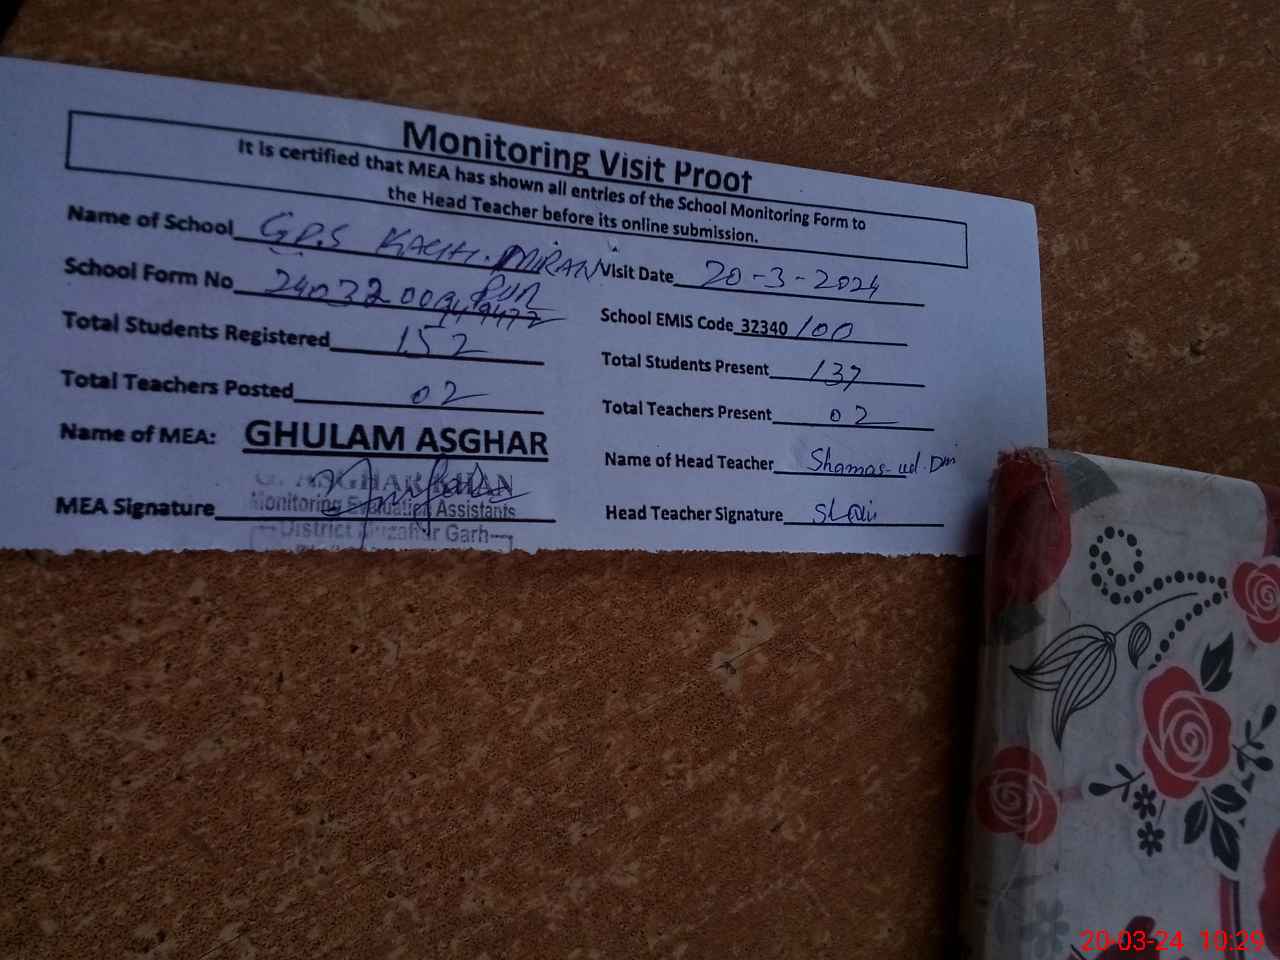 Monitoring Visit Proof
It is certified that MEA has shown all entries of the School Monitoring Form to
the Head Teacher before its online submission.
Name of School GPS KACHI. MIRAN
PUR
Visit Date 20-3-2024
School Form No
School EMIS Code 32340100
Total Students Registered 152
Total Students Present 137
Total Teachers Posted 02
Total Teachers Present 02
Name of MEA: GHULAM ASGHAR
Name of Head Teacher Shamas-ud-Din
G. ASGHAR KHAN
Monitoring Evaluation Assistants
District Muzaffar Garh
MEA Signature
Head Teacher Signature
20-03-24 10:29